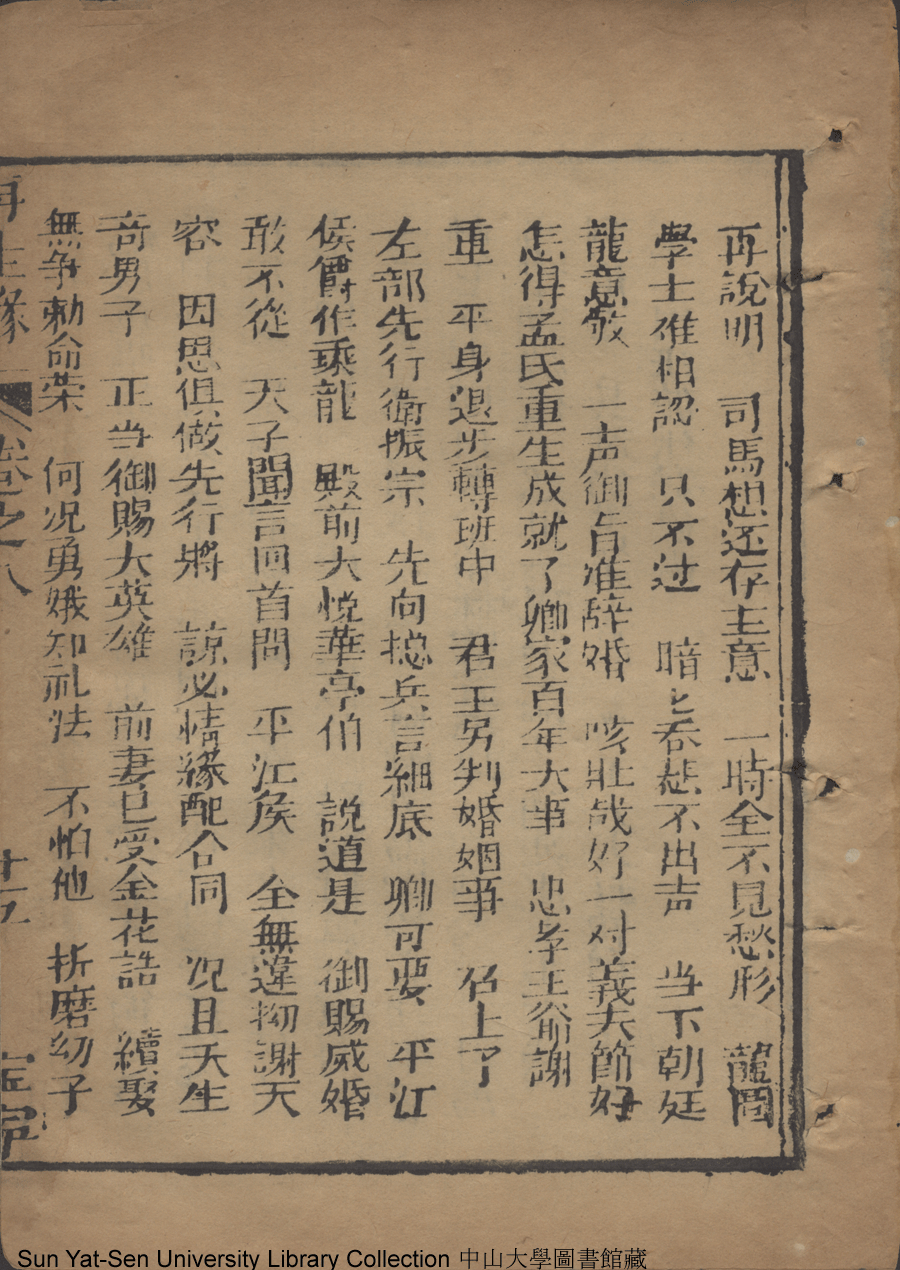 再說明 司馬想还存主意 一時全不見愁形 龍圖
學士难相認 只不过 暗乜吞悲不出声 当下朝廷
龍意敬 一声御旨准辞婚 咳壮哉好一对義夫節好
怎得孟氏重生成就了卿家百年大事 忠孝王爺謝
重 平身退步轉班中 君王另判婚姻事 召上了
左部先行衛振宗 先向捴兵言細底 卿可要 平江
侯爵作乘龍 殿前大悅華亭伯 說道是 御賜威婚
敢不從 天子聞言回首問 平江侯 全無違拗謝天
容 因思俱做先行將 諒必情緣配合同 况且天生
奇男子 正当御賜大英雄 前妻已受金花誥 續娶
無争勅命荣 何况勇娥知礼法 不怕他 折磨幼子
再生緣 卷之八 十五
Sun Yat-Sen University Library Collection 中山大學圖書館藏